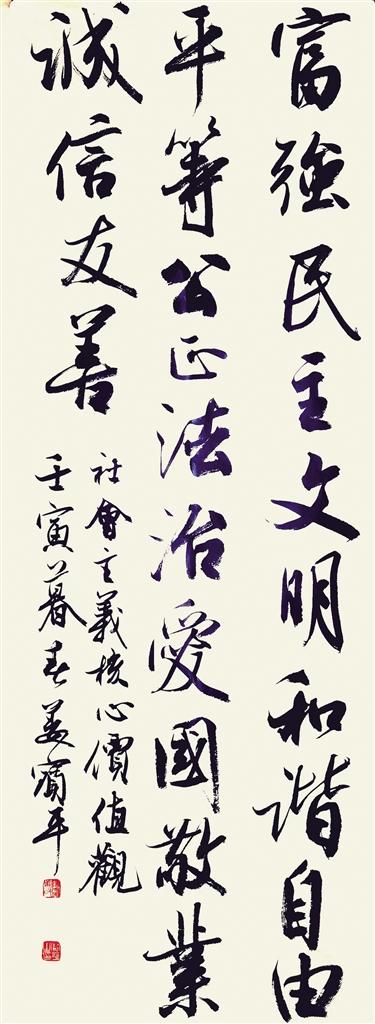 富強民主文明和諧自由
平等公正法治愛國敬業
誠信友善
社會主義核心價值觀
壬寅暮春姜賓平